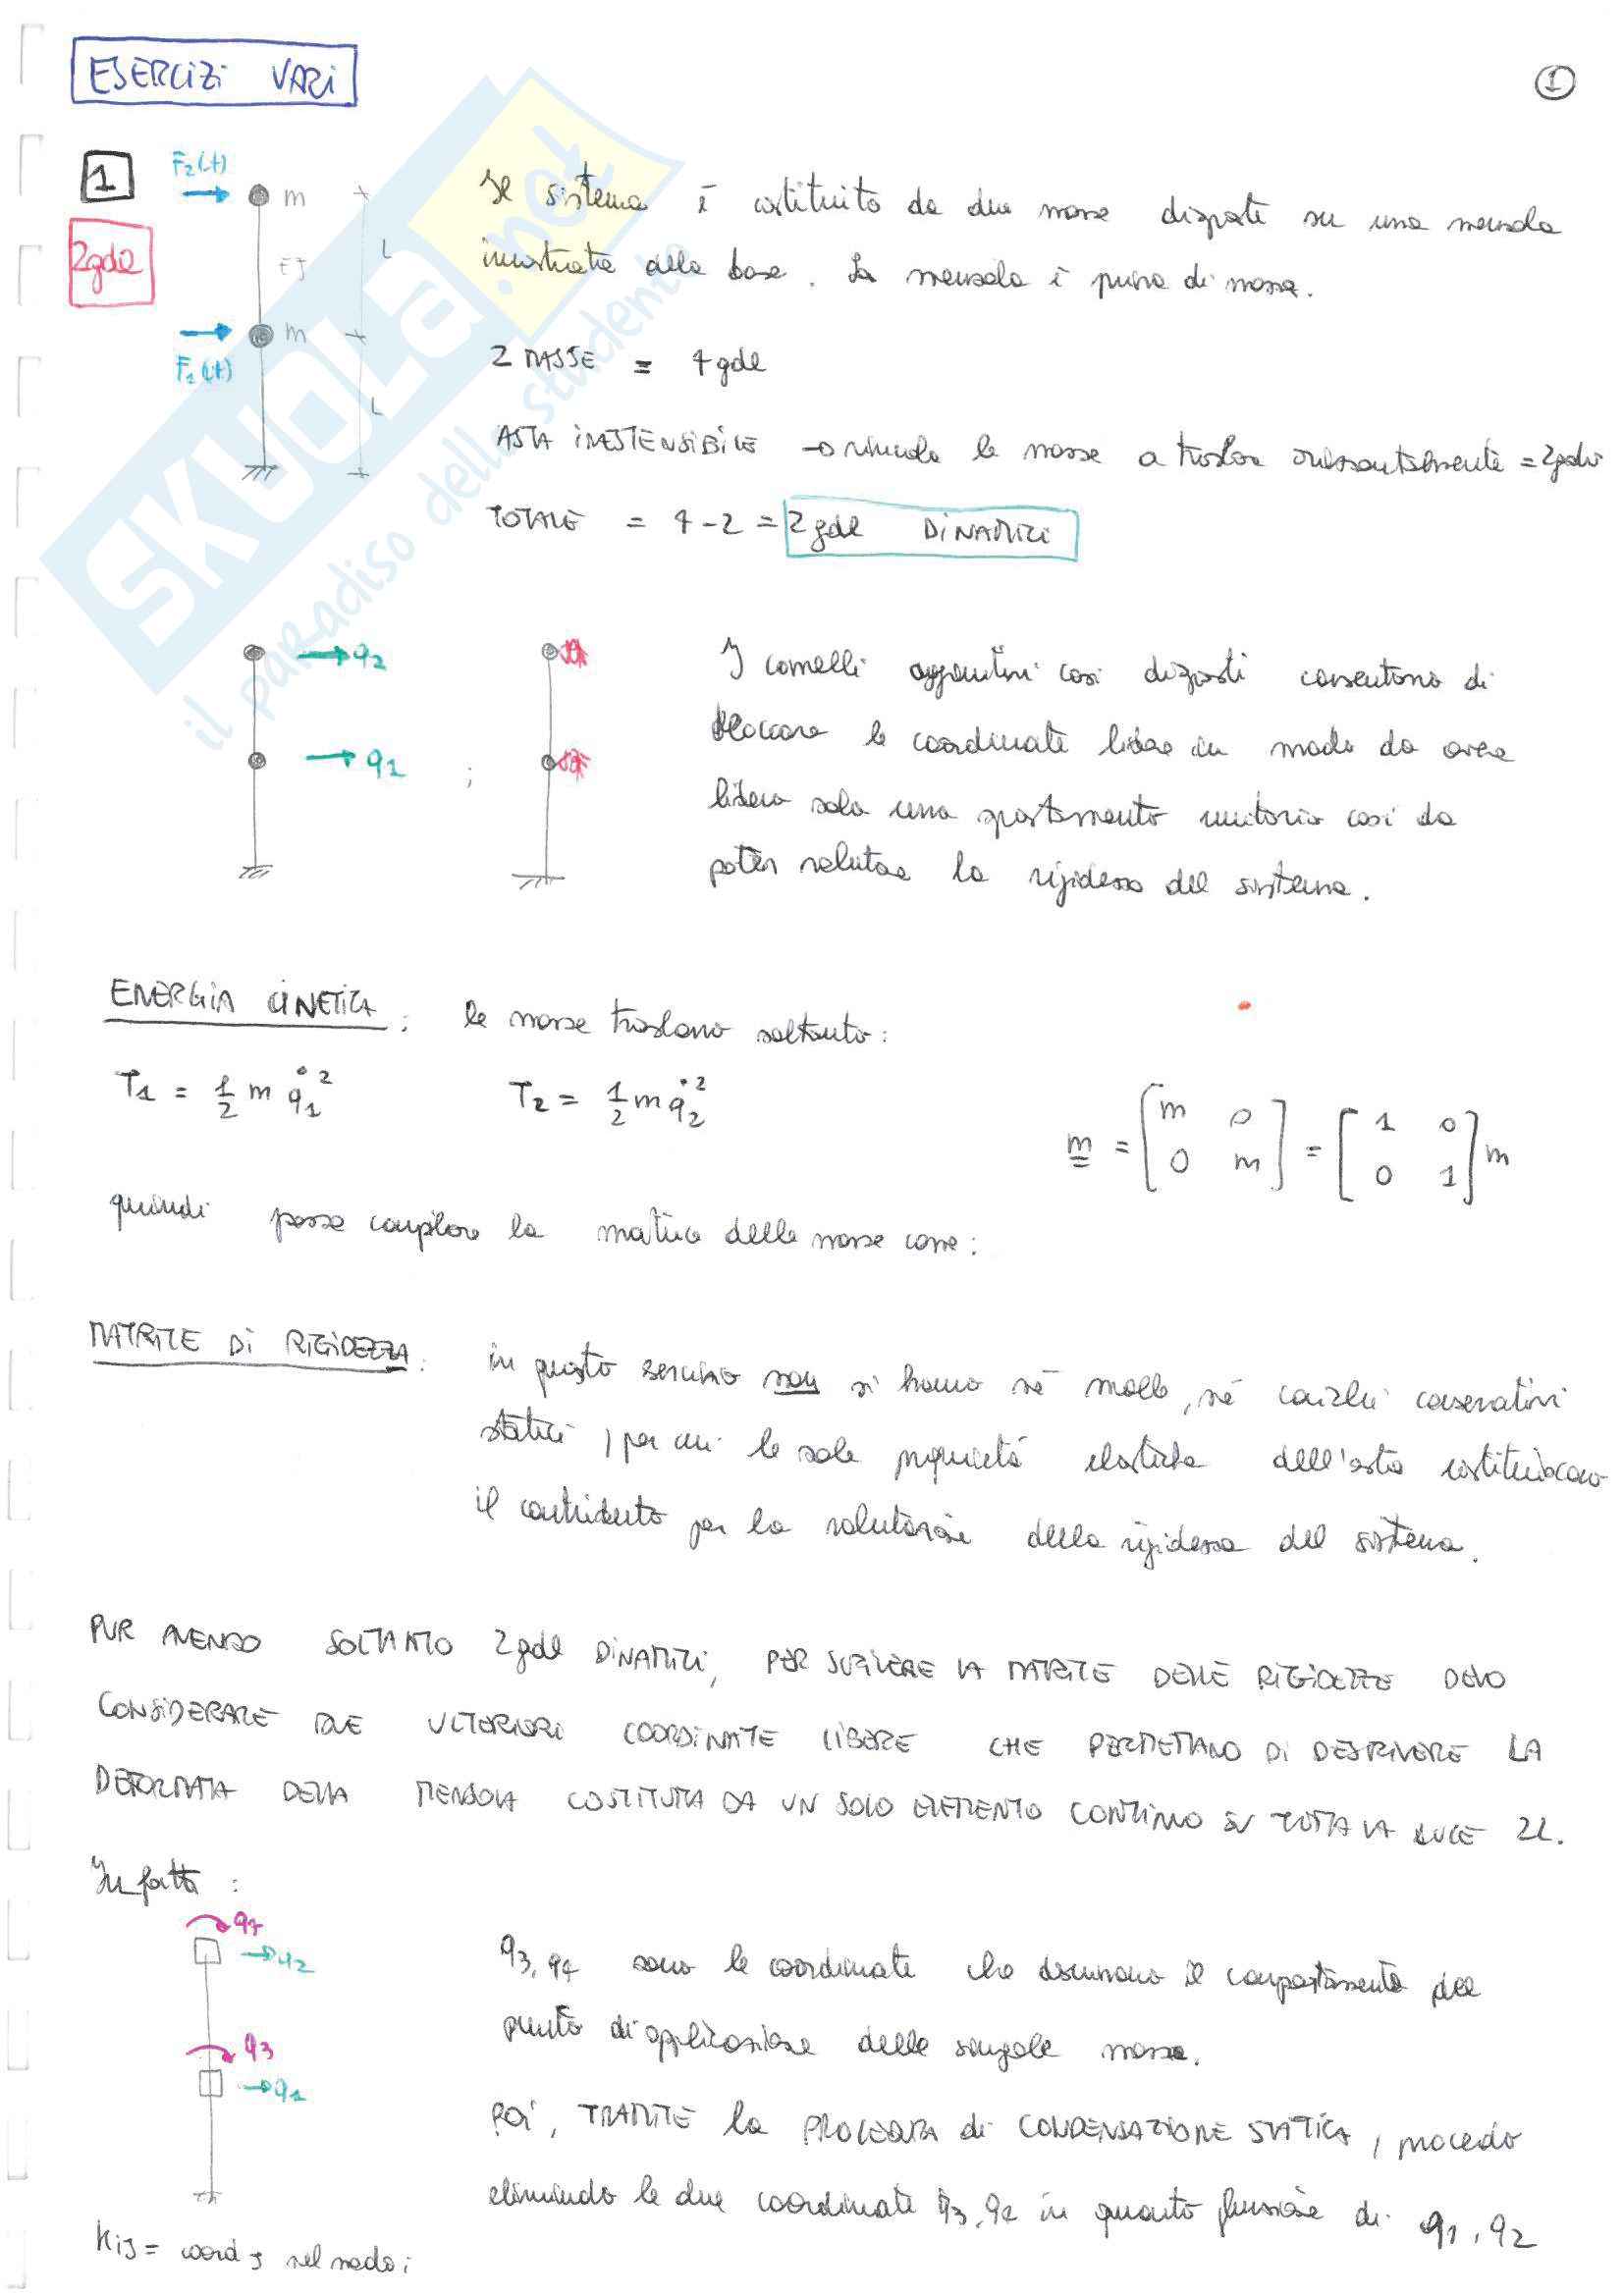 ESERCIZI VARI
1
1
2gdl
F2(t)
m
L
EJ
m
F1(t)
L
Il sistema è costituito da due masse disposte su una mensola
incastrata alla base. La mensola è priva di massa.
2 MASSE = 4gdl
ASTA INESTENSIBILE → vincola le masse a traslare orizzontalmente = 2gdv
TOTALE = 4-2 = 2gdl DINAMICI
SKUOLA.net
il paradiso dello studente
q2
q1
;
I carrelli aggiuntivi così disposti consentono di
bloccare le coordinate libere in modo da avere
libero solo uno spostamento unitario così da
poter valutare la rigidezza del sistema.
ENERGIA CINETICA: le masse traslano soltanto:
T1 = 1/2 m q̇1² T2 = 1/2 m q̇2²
m = [m 0; 0 m] = [1 0; 0 1] m
quindi posso compilare la matrice delle masse come:
MATRICE DI RIGIDEZZA: in questo esercizio non si hanno né molle, né carichi conservativi
statici, per cui le sole proprietà elastiche dell'asta costituiscono
il contributo per la valutazione della rigidezza del sistema.
PUR AVENDO SOLTANTO 2gdl DINAMICI, PER SCRIVERE LA MATRICE DELLE RIGIDEZZE DEVO
CONSIDERARE DUE ULTERIORI COORDINATE LIBERE CHE PERMETTANO DI DESCRIVERE LA
DEFORMATA DELLA MENSOLA COSTITUITA DA UN SOLO ELEMENTO CONTINUO SU TUTTA LA LUCE 2L.
Infatti:
q4
q2
q3
q1
q3, q4 sono le coordinate che descrivono il comportamento del
punto di applicazione delle singole masse.
POI, TRAMITE la PROCEDURA di CONDENSAZIONE STATICA, procedo
eliminando le due coordinate q3, q4 in quanto funzione di q1, q2
Kij = coord j nel nodo i